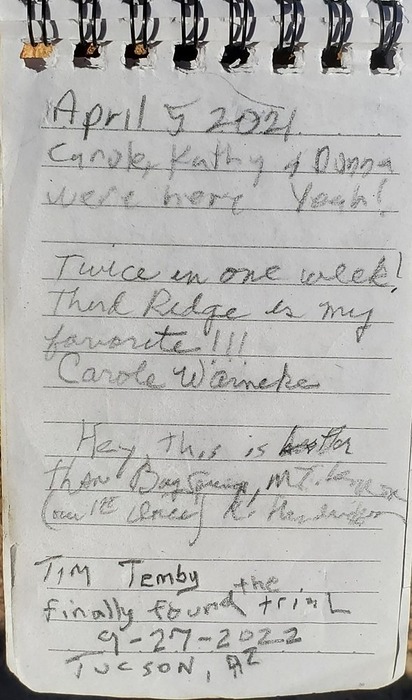 April 5 2021
Carole, Kathy & Donna
were here Yeah!
Twice in one week!
Third Ridge is my
favorite!!!
Carole Warneke
Hey, this is better
than
(our 1st
Tim Temby
finally found the trail
9-27-2022
Tucson, AZ